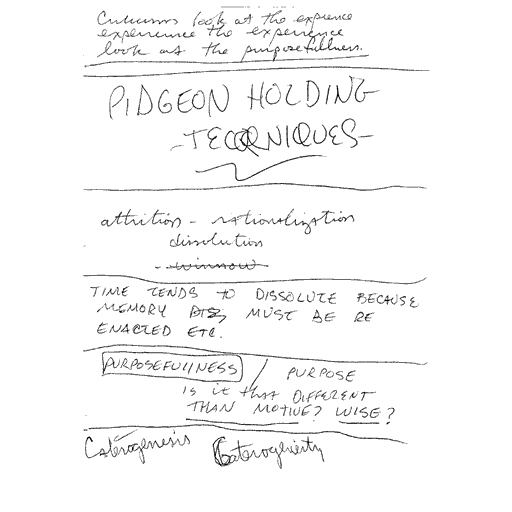 look at the expience
experience the experience
look at the purposefullness.
PIDGEON HOLDING
-TECQNIQUES-
attrition - rationalization
dissolution
- winnow
TIME TENDS TO DISSOLUTE BECAUSE
MEMORY MUST BE RE
ENACTED ETC.
PURPOSEFULLNESS / PURPOSE
is it that DIFFERENT
THAN MOTIVE? WISE?